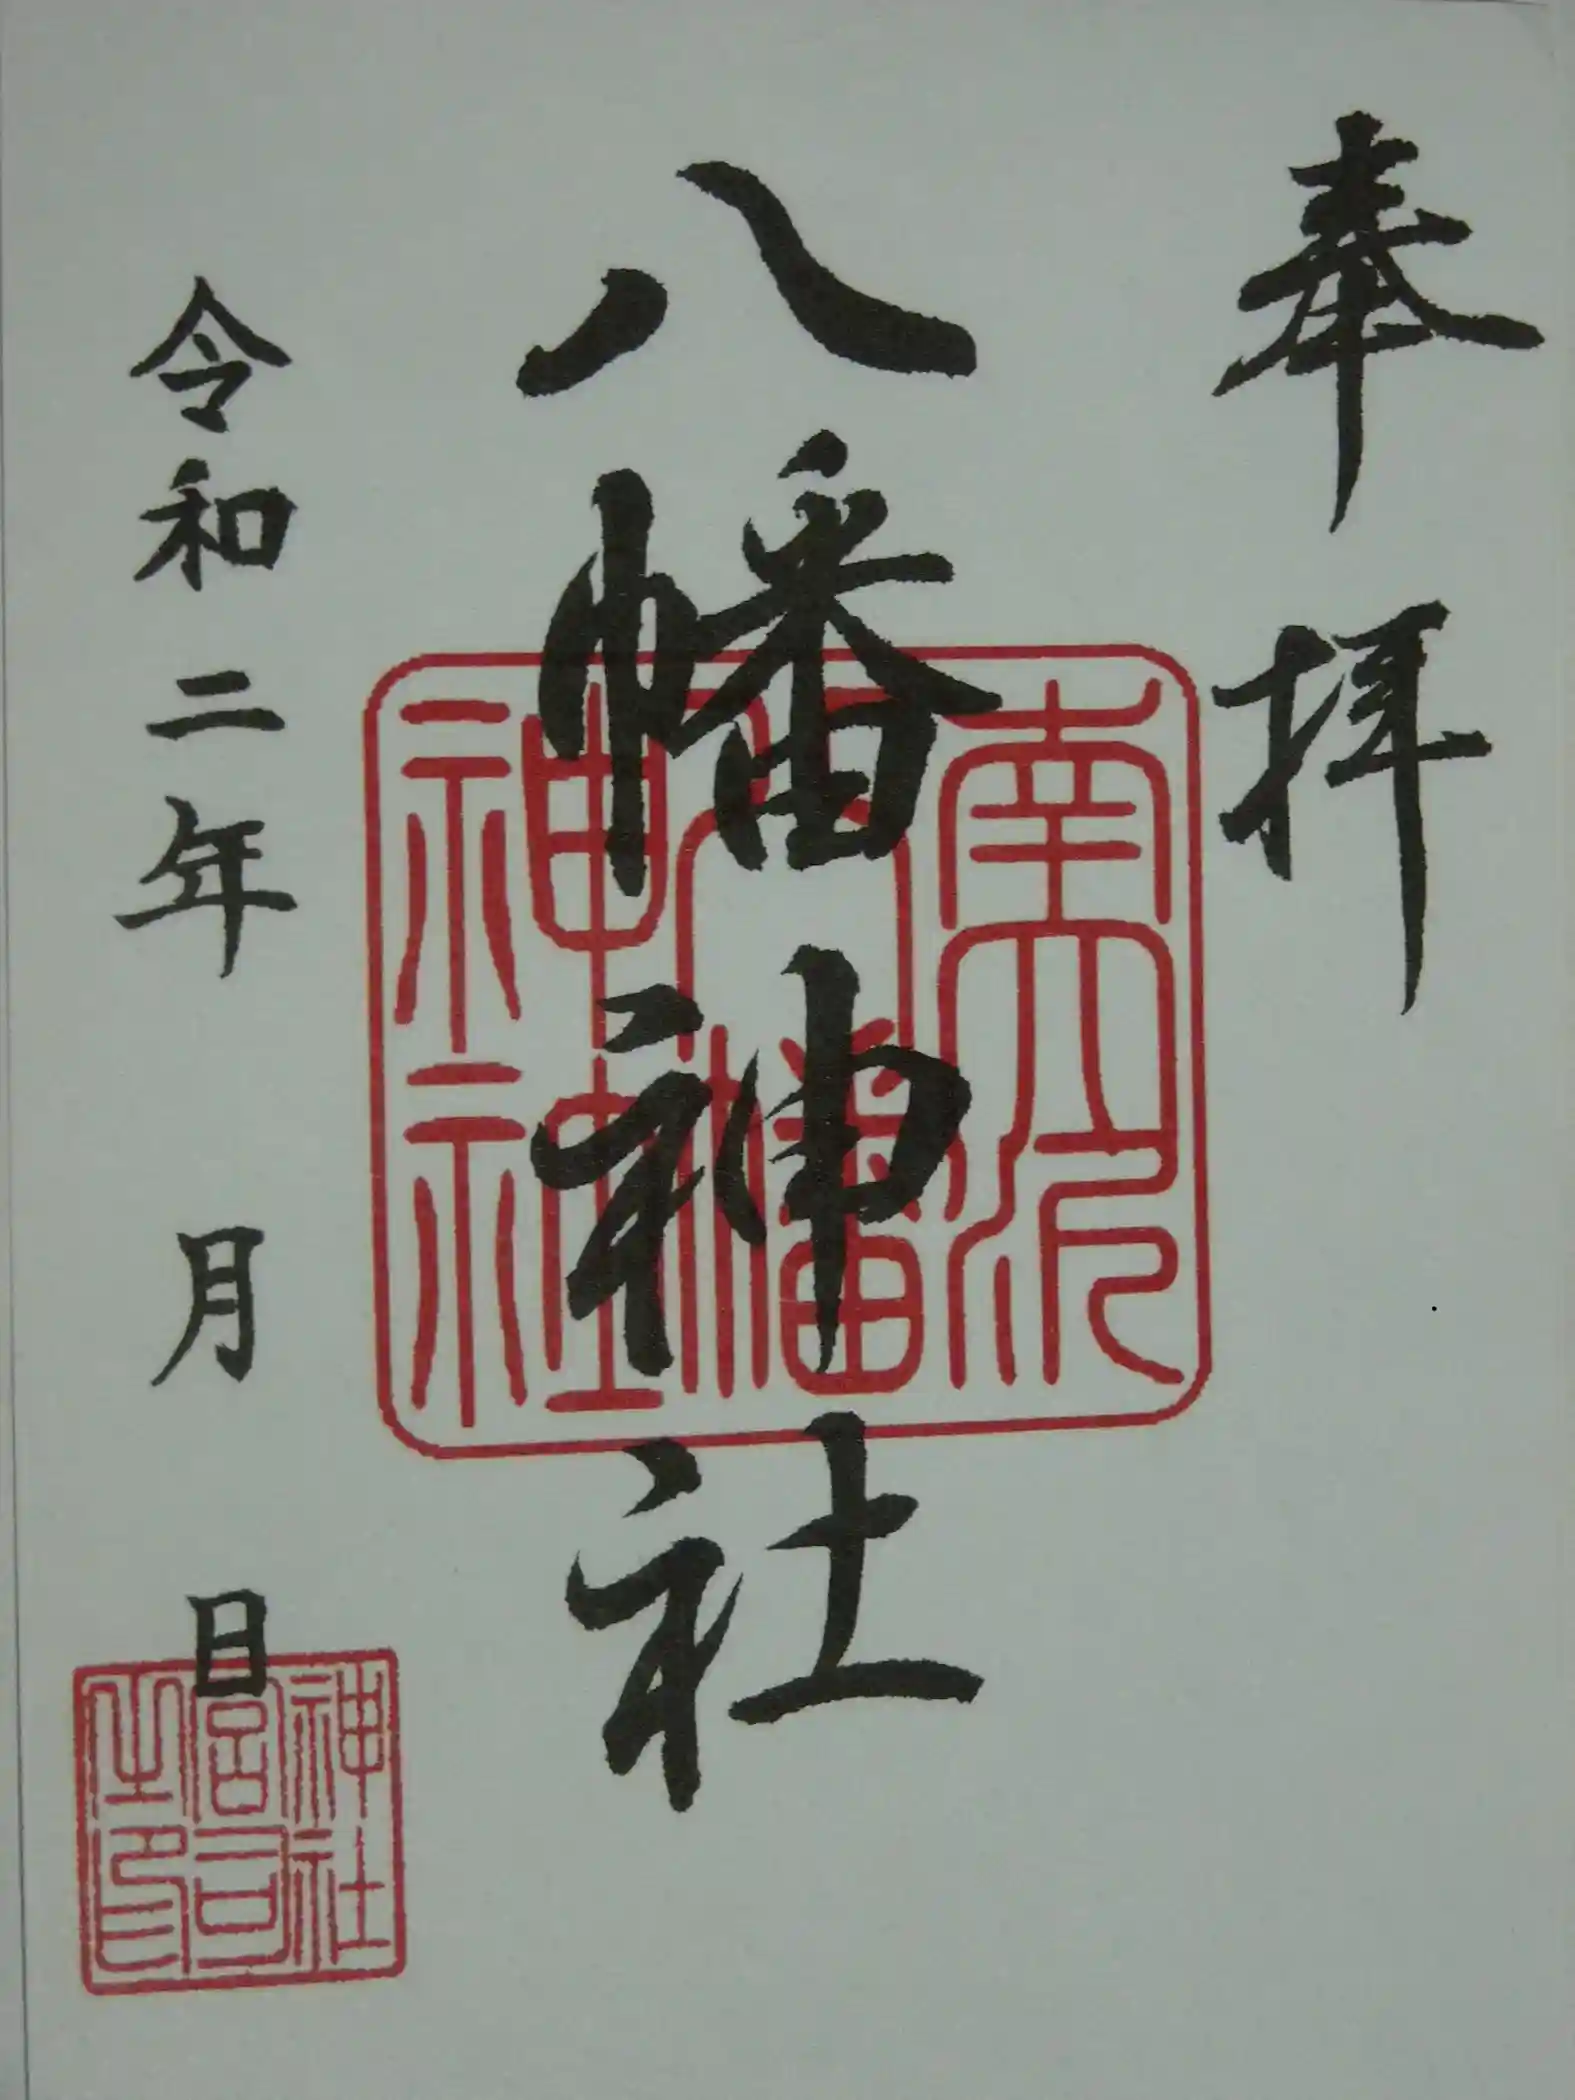 奉拝
八幡神社
令和二年 月 日
八幡
神社
神社
宮司
之印